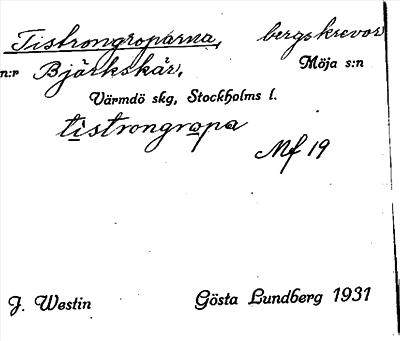 Tistrongroparna, bergskrevor
n:r Bjärkskär, Möja s:n
Värmdö skg, Stockholms l.
tistrongropa
Mf 19
J. Westin Gösta Lundberg 1931